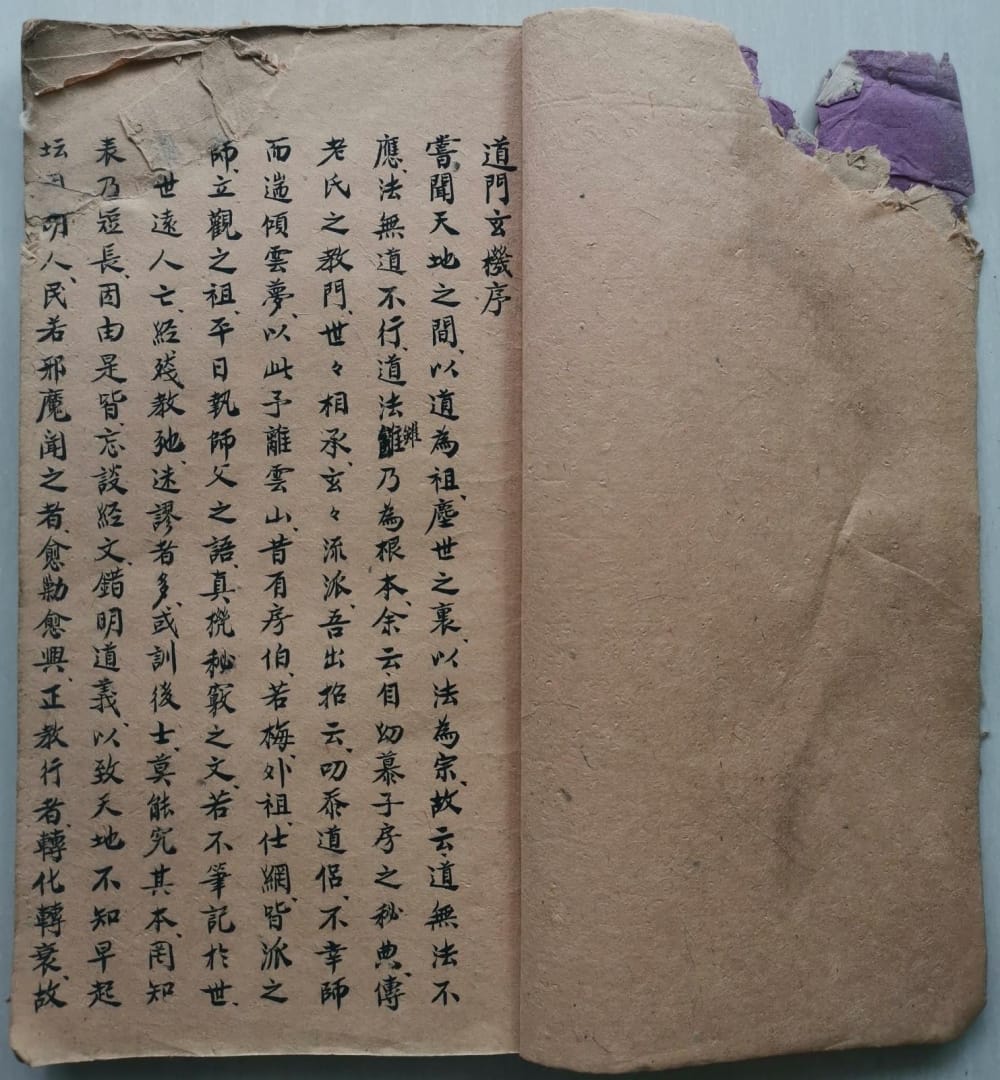 道門玄機序
嘗聞天地之間、以道為祖、塵世之裏、以法為宗、故云、道無法不
應、法無道不行、道法雖乃為根本、余云、自幼慕子房之秘典、傳
老氏之教門、世々相承、玄々流派、吾出招云、叨忝道侶、不幸師
而遄傾雲夢、以此予離雲山、昔有房伯、若梅外祖、仕網、皆派之
師、立觀之祖、平日執師父之語、真機秘竅之文、若不筆記於世、
世遠人亡、經殘教弛、迷謬者多、或訓後士、莫能究其本、罔知
表乃短長、因由是皆、忘談經文、錯明道義、以致天地不知早起
坛 明人、民若邪魔闻之者、愈勦愈興、正教行者、轉化轉衰、故